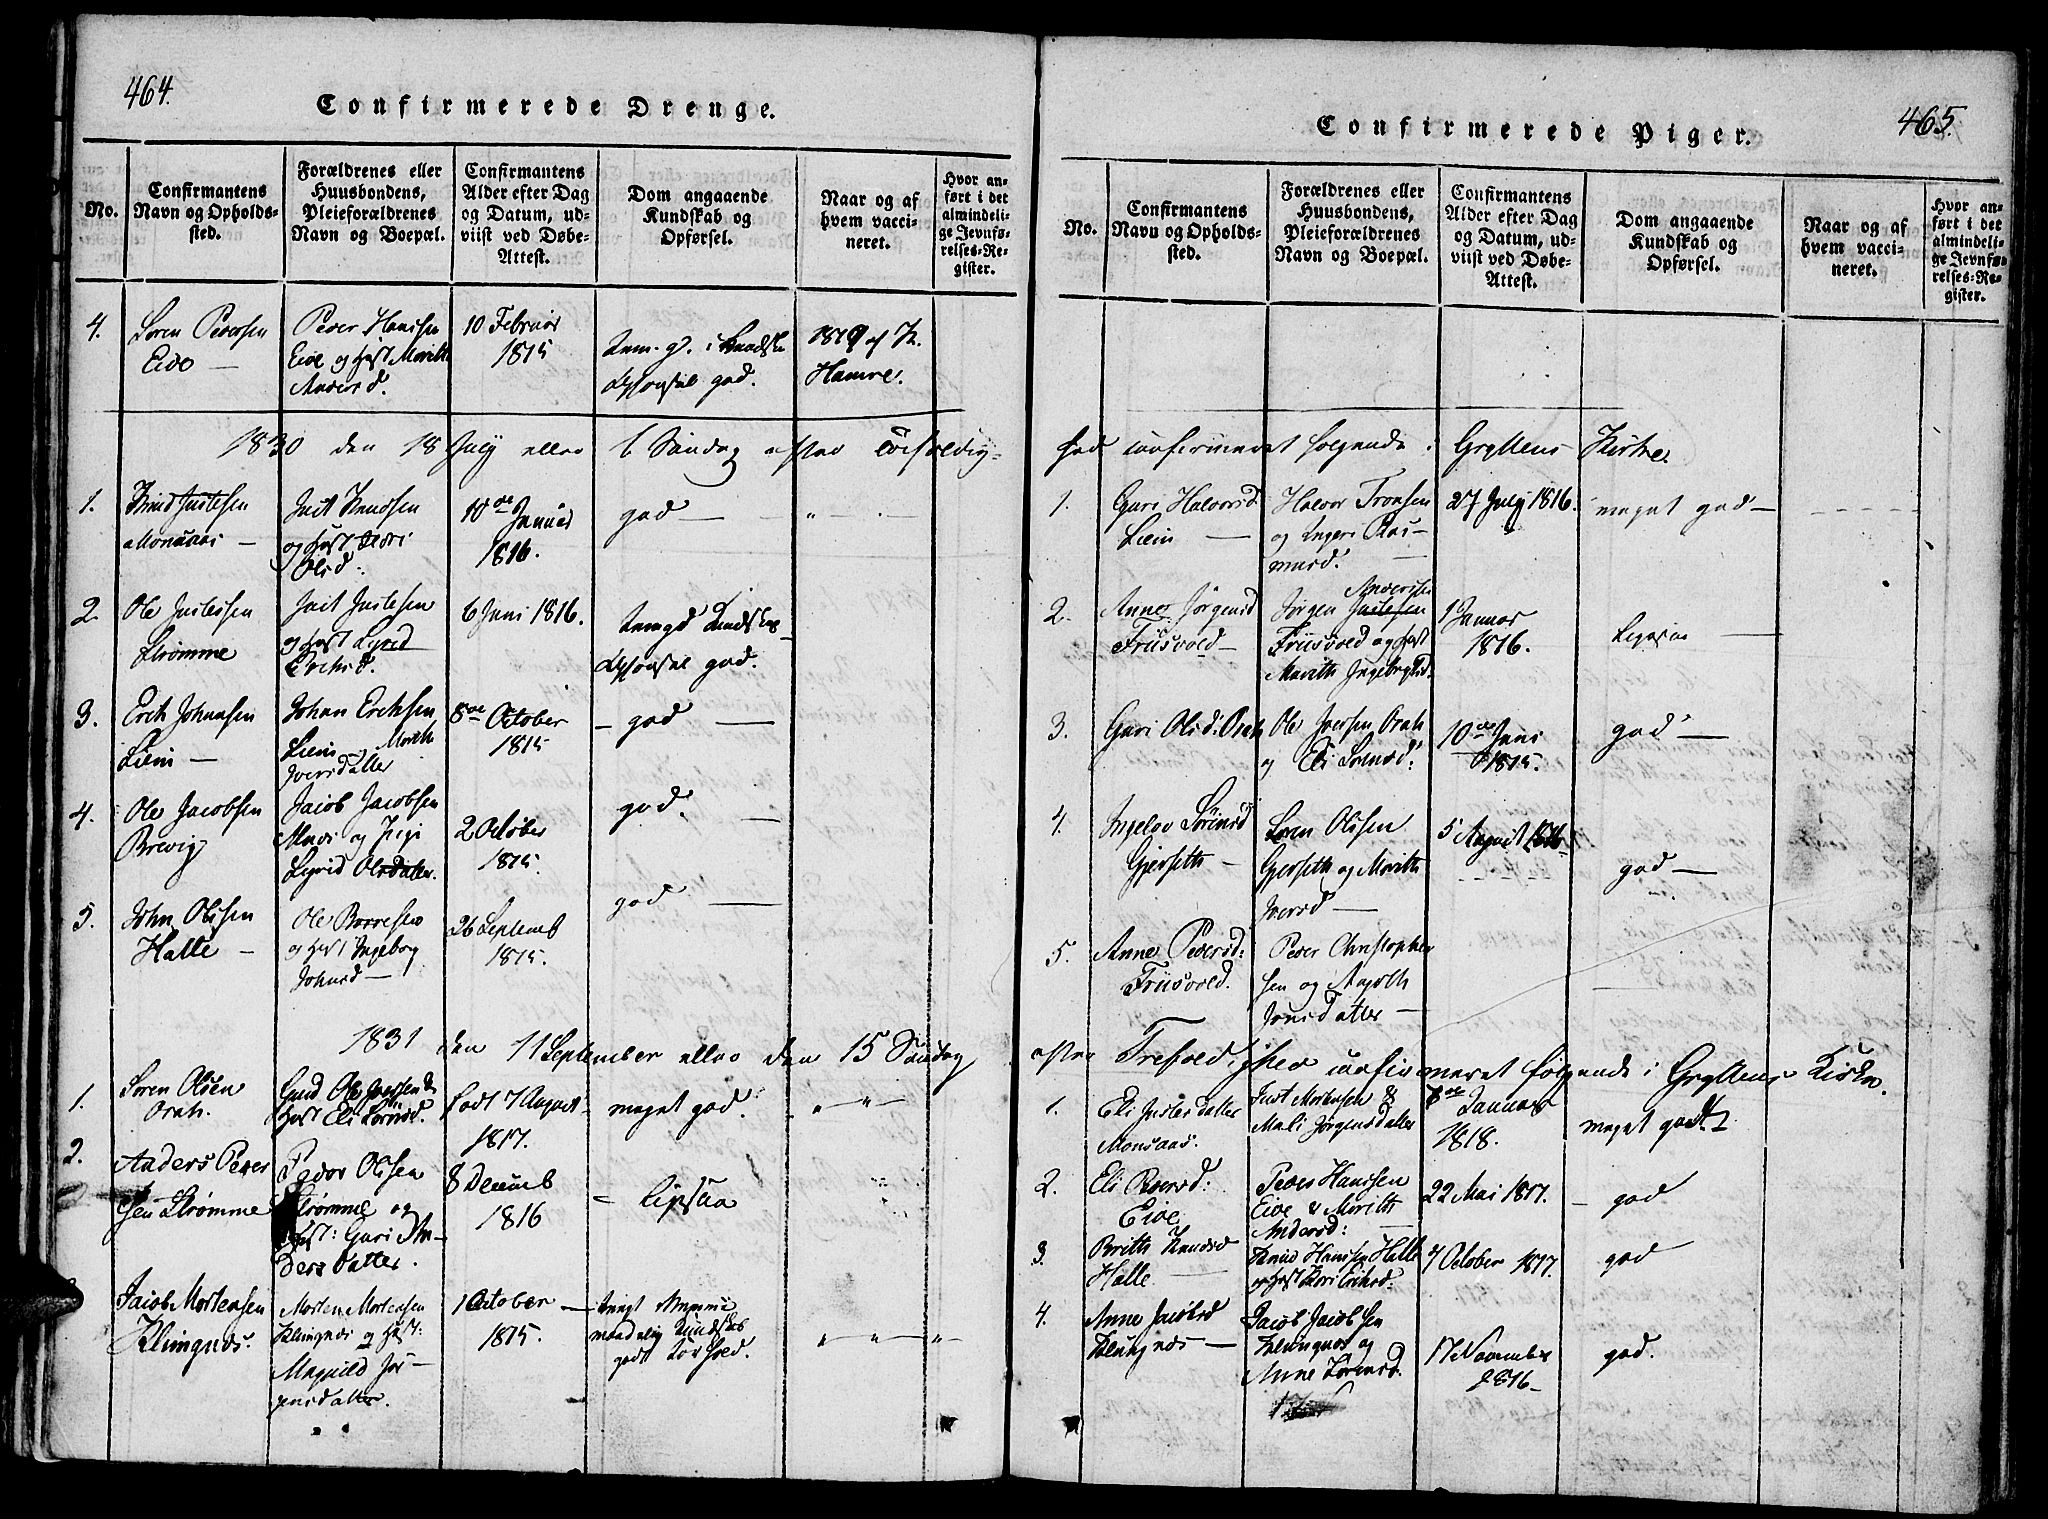 464.
Confirmerede Drenge.
No.
Confirmantens
Navn og Opholds-
sted.
Forældrenes eller
Huusbondens,
Pleieforældrenes
Navn og Boepæl.
Confirmantens
Alder efter Dag
og Datum, ud-
viist ved Døbe-
Attest.
Dom angaaende
Kundskab og
Opførsel.
Naar og af
hvem vacci-
neret.
Hvor an-
ført i det
almindeli-
ge Jevnfø-
relses-Re-
gister.
4.
Søren Pedersen
Eide —
Peder Hansen
Eide og Hust Marith
Andersd.
10 Februar
1815
god.
Hamre.
1830 den 18 July eller 6 Søndag efter
1.
Knud Justesen
Monsaas —
Just Knudsen
og Hust
Olsd:
10de Januar
1816.
god —
2.
Ole Justesen
Strømme
Just Justesen
og Hust Sigrid
Erichsd.
6 Juni 1816.
god.
3.
Erich Johansen
Liem —
Johan Erichsen
Liem Marith
Iversdatter
8de October
1815
— god —
4.
Ole Jacobsen
Brevig
Jacob Jacobsen
og
Sigrid Olsdatter.
2 October
1815.
god. —
5.
John Olsen
Halle —
Ole
og Hust Ingeborg
Johnsd —
26 Septemb
1815.
god —
1831 den 11 September eller den 15 Søndag
1.
Søren Olsen
Orah.
Gmd Ole Iversen &
Hust Eli Sørensd.
født 7 August
1817.
meget god.
2.
Anders Peder
sen Strømme
Peder Olsen
Strømme og
Hust: Guri An-
dersdatter.
8 Decemb
1816
— Ligesaa
Jacob Mortensen
Klungnæs.
Morten Mortensen
Klungnæs og Hust:
Magnild Jør-
gensdatter.
1 October —
1815.
maadelig Kundskab
godt Forhold.
465.
Confirmerede Piger.
No.
Confirmantens
Navn og Opholds-
sted.
Forældrenes eller
Huusbondens,
Pleieforældrenes
Navn og Boepæl.
Confirmantens
Alder efter Dag
og Datum, ud-
viist ved Døbe-
Attest.
Dom angaaende
Kundskab og
Opførsel.
Naar og af
hvem vacci-
neret.
Hvor an-
ført i det
almindeli-
ge Jevnfø-
relses-Re-
gister.
hed confirmeret følgende i Gryttens Kirke.
1.
Guri Halvorsd
Liem —
Halvor Tronsen
og Ingeri Ras-
musd.
27 July 1816.
meget god —
2.
Anne Jørgensd
Friisvold —
Andersen
Jørgen Justesen
Friisvold og Hust
Marith Ingebrigtsd.
1 Januar
1816.
Ligesaa —
3.
Guri Olsd: Orah
Ole Iversen Orah
og Eli Sørensd:
10de Juni
1815.
god —
4.
Ingelov Sørensd
Gjerseth —
Søren Olsen
Gjerseth og Marith
Iversd —
5 August 1816
god —
5.
Anne Pedersd:
Friisvold.
Peder Christopher
sen og
Jonsdatter —
efter Trefoldighed confirmeret følgende i Gryttens Kirke.
1.
Eli Justesdatter
Monsaas.
Just Mortensen &
Mali Jørgensdatter
8de Januar
1818.
meget godt
2.
Eli Pedersd:
Eide
Peder Hansen
Eide & Marith
Andersd:
22 Mai 1817.
— god
3.
Brith Knudsd
Halle —
Knud Hansen Halle
og Hust Kari Erichsd:
7 October 1817.
god
4.
Anne Jacobsd
Klungnæs —
Jacob Jacobsen
Klungnæs og
Anne Sørensd.
17 November
1816 —
god.